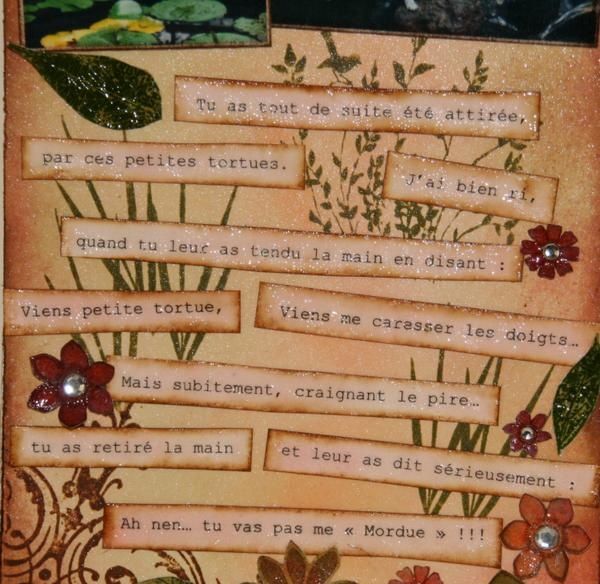 Tu as tout de suite été attirée,
par ces petites tortues.
J'ai bien ri,
quand tu leur as tendu la main en disant :
Viens petite tortue,
Viens me carasser les doigts…
Mais subitement, craignant le pire…
tu as retiré la main
et leur as dit sérieusement :
Ah nen… tu vas pas me « Mordue » !!!